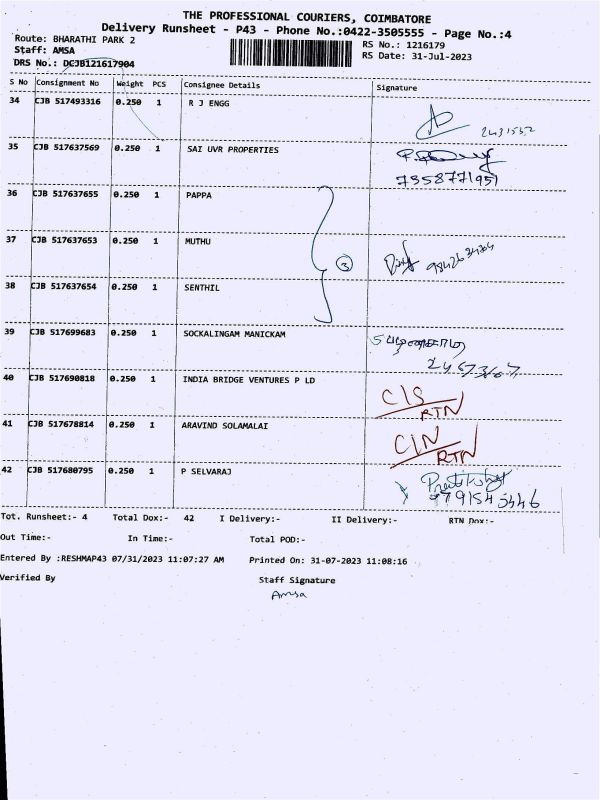 THE PROFESSIONAL COURIERS, COIMBATORE
Delivery Runsheet - P43 - Phone No.:0422-3505555 - Page No.:4
Route: BHARATHI PARK 2 RS No.: 1216179
Staff: AMSA RS Date: 31-Jul-2023
DRS No.: DCJB121617904
S No Consignment No Weight PCS Consignee Details Signature
34 CJB 517493316 0.250 1 R J ENGG
2431552
35 CJB 517637569 0.250 1 SAI UVR PROPERTIES
7358771951
36 CJB 517637655 0.250 1 PAPPA
37 CJB 517637653 0.250 1 MUTHU
3
38 CJB 517637654 0.250 1 SENTHIL
39 CJB 517699683 0.250 1 SOCKALINGAM MANICKAM
40 CJB 517690818 0.250 1 INDIA BRIDGE VENTURES P LD
C/S
RTN
41 CJB 517678814 0.250 1 ARAVIND SOLAMALAI
C/N
RTN
42 CJB 517680795 0.250 1 P SELVARAJ
Tot. Runsheet:- 4 Total Dox:- 42 I Delivery:- II Delivery:- RTN Dox:-
Out Time:- In Time:- Total POD:-
Entered By :RESHMAP43 07/31/2023 11:07:27 AM Printed On: 31-07-2023 11:08:16
Verified By Staff Signature
Amsa